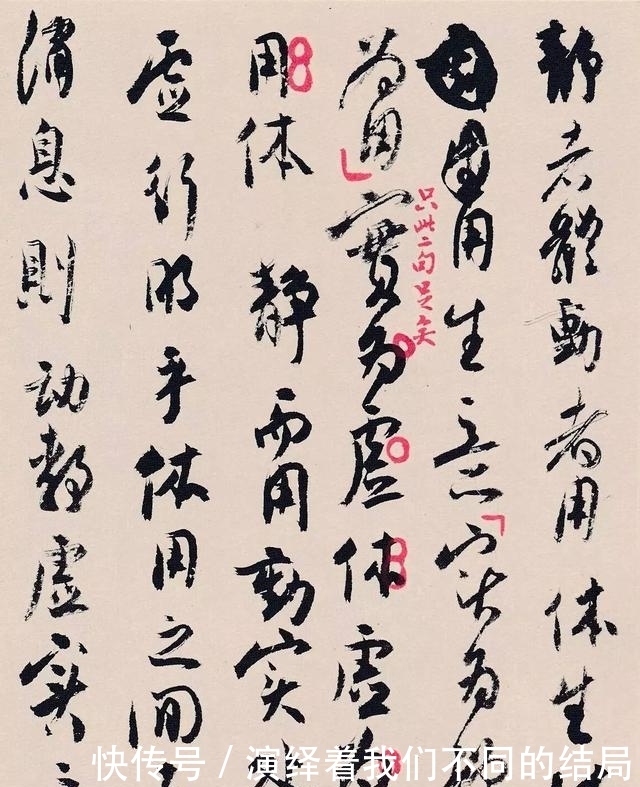 静者體動者用体生
用生意实为
为用實为虚体虚
只此二句足矣
用体静而用動实
虚行乎体用之间
消息則动静虚实之
快传号 / 演绎着我们不同的结局